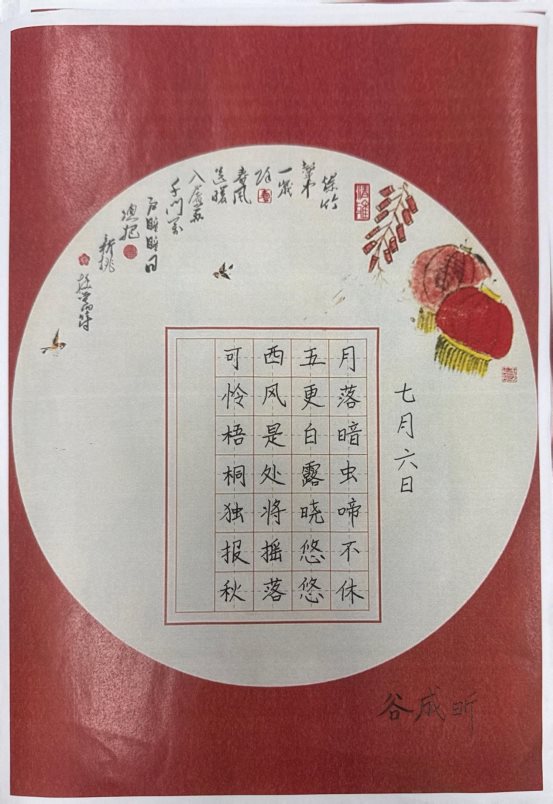 爆竹
声中
一岁
除
春风
送暖
入屠苏
千门万
户曈曈日
总把
新桃
七月六日
月落暗虫啼不休
五更白露晓悠悠
西风是处将摇落
可怜梧桐独报秋
谷成昕